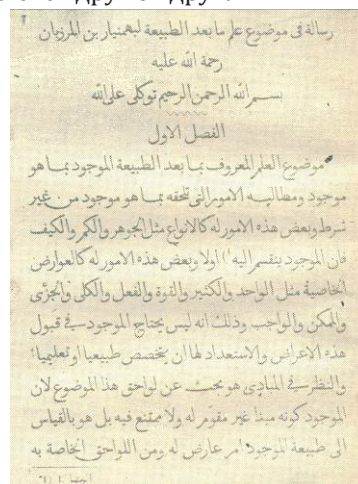 رسالة فى موضوع علم ما بعد الطبيعة لبهمنيار بن المرزبان
رحمة الله عليه
بسم الله الرحمن الرحيم توكلى على الله
الفصل الاول
موضوع العلم المعروف بما بعد الطبيعة الموجود بما هو
موجود ومطالبه الامور التى تلحقه بما هو موجود من غير
شرط وبعض هذه الامور له كالانواع مثل الجوهر والكم والكيف
فان الموجود ينقسم اليه ١) اولا وبعض هذه الامور له كالعوارض
الخاصية مثل الواحد والكثير والقوة والفعل والكلى والجزئى
والممكن والواجب وذلك انه ليس يحتاج الموجود فى قبول
هذه الاعراض والاستعداد لها ان يتخصص طبيعيا او تعليميا
والنظر فى المبادى هو بحث عن لواحق هذا الموضوع لان
الموجود كونه مبدأ غير مقوم له ولا ممتنع فيه بل هو بالقياس
الى طبيعة الموجود امر عارض له ومن اللواحق الخاصة به